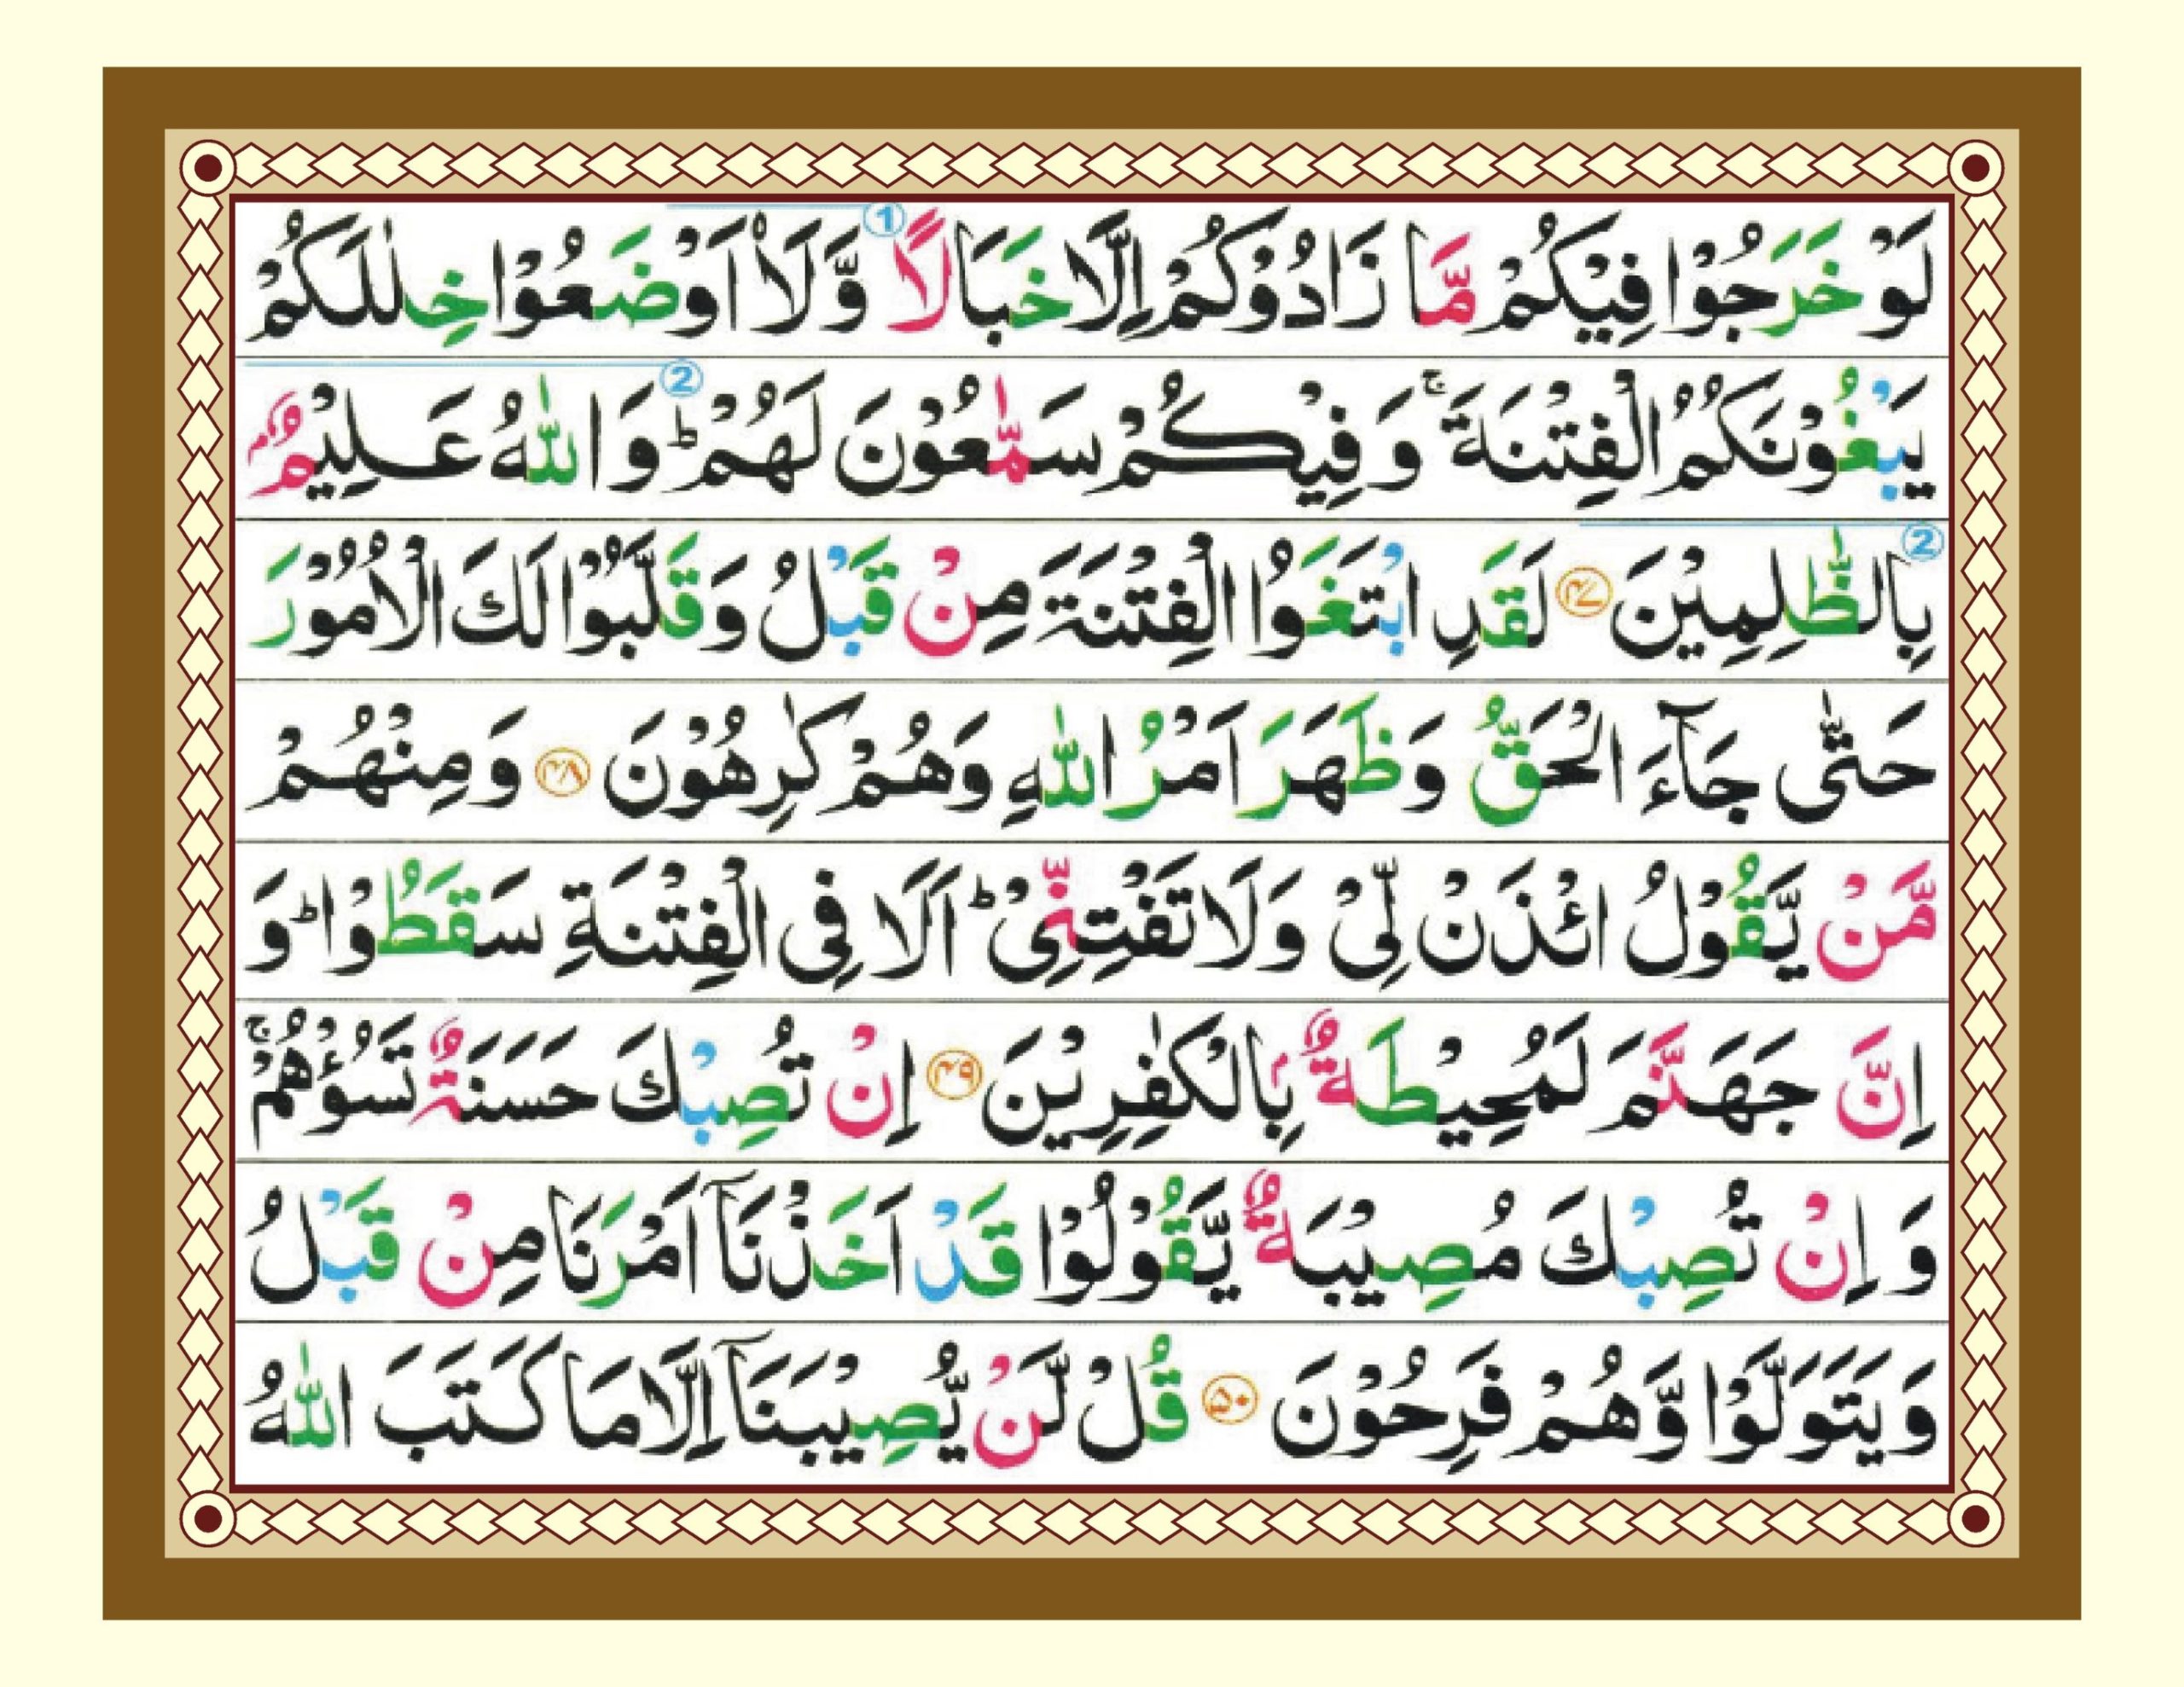 لَوْ خَرَجُوْا فِيْكُمْ مَّا زَادُوْكُمْ اِلَّا خَبَالًا ① وَّلَا۟اَوْضَعُوْا خِلٰلَكُمْ
يَبْغُوْنَكُمُ الْفِتْنَةَ ۚ وَفِيْكُمْ سَمّٰعُوْنَ لَهُمْ ؕ ② وَاللّٰهُ عَلِيْمٌۢ
② بِالظّٰلِمِيْنَ ۝۴۷ لَقَدِ ابْتَغَوُا الْفِتْنَةَ مِنْ قَبْلُ وَقَلَّبُوْا لَكَ الْاُمُوْرَ
حَتّٰى جَآءَ الْحَقُّ وَظَهَرَ اَمْرُ اللّٰهِ وَهُمْ كٰرِهُوْنَ ۝۴۸ وَمِنْهُمْ
مَّنْ يَّقُوْلُ ائْذَنْ لِّىْ وَلَا تَفْتِنِّىْ ؕ اَلَا فِى الْفِتْنَةِ سَقَطُوْا ؕ وَ
اِنَّ جَهَنَّمَ لَمُحِيْطَةٌۢ بِالْكٰفِرِيْنَ ۝۴۹ اِنْ تُصِبْكَ حَسَنَةٌ تَسُؤْهُمْ ۚ
وَاِنْ تُصِبْكَ مُصِيْبَةٌ يَّقُوْلُوْا قَدْ اَخَذْنَاۤ اَمْرَنَا مِنْ قَبْلُ
وَيَتَوَلَّوْا وَّهُمْ فَرِحُوْنَ ۝۵۰ قُلْ لَّنْ يُّصِيْبَنَاۤ اِلَّا مَا كَتَبَ اللّٰهُ